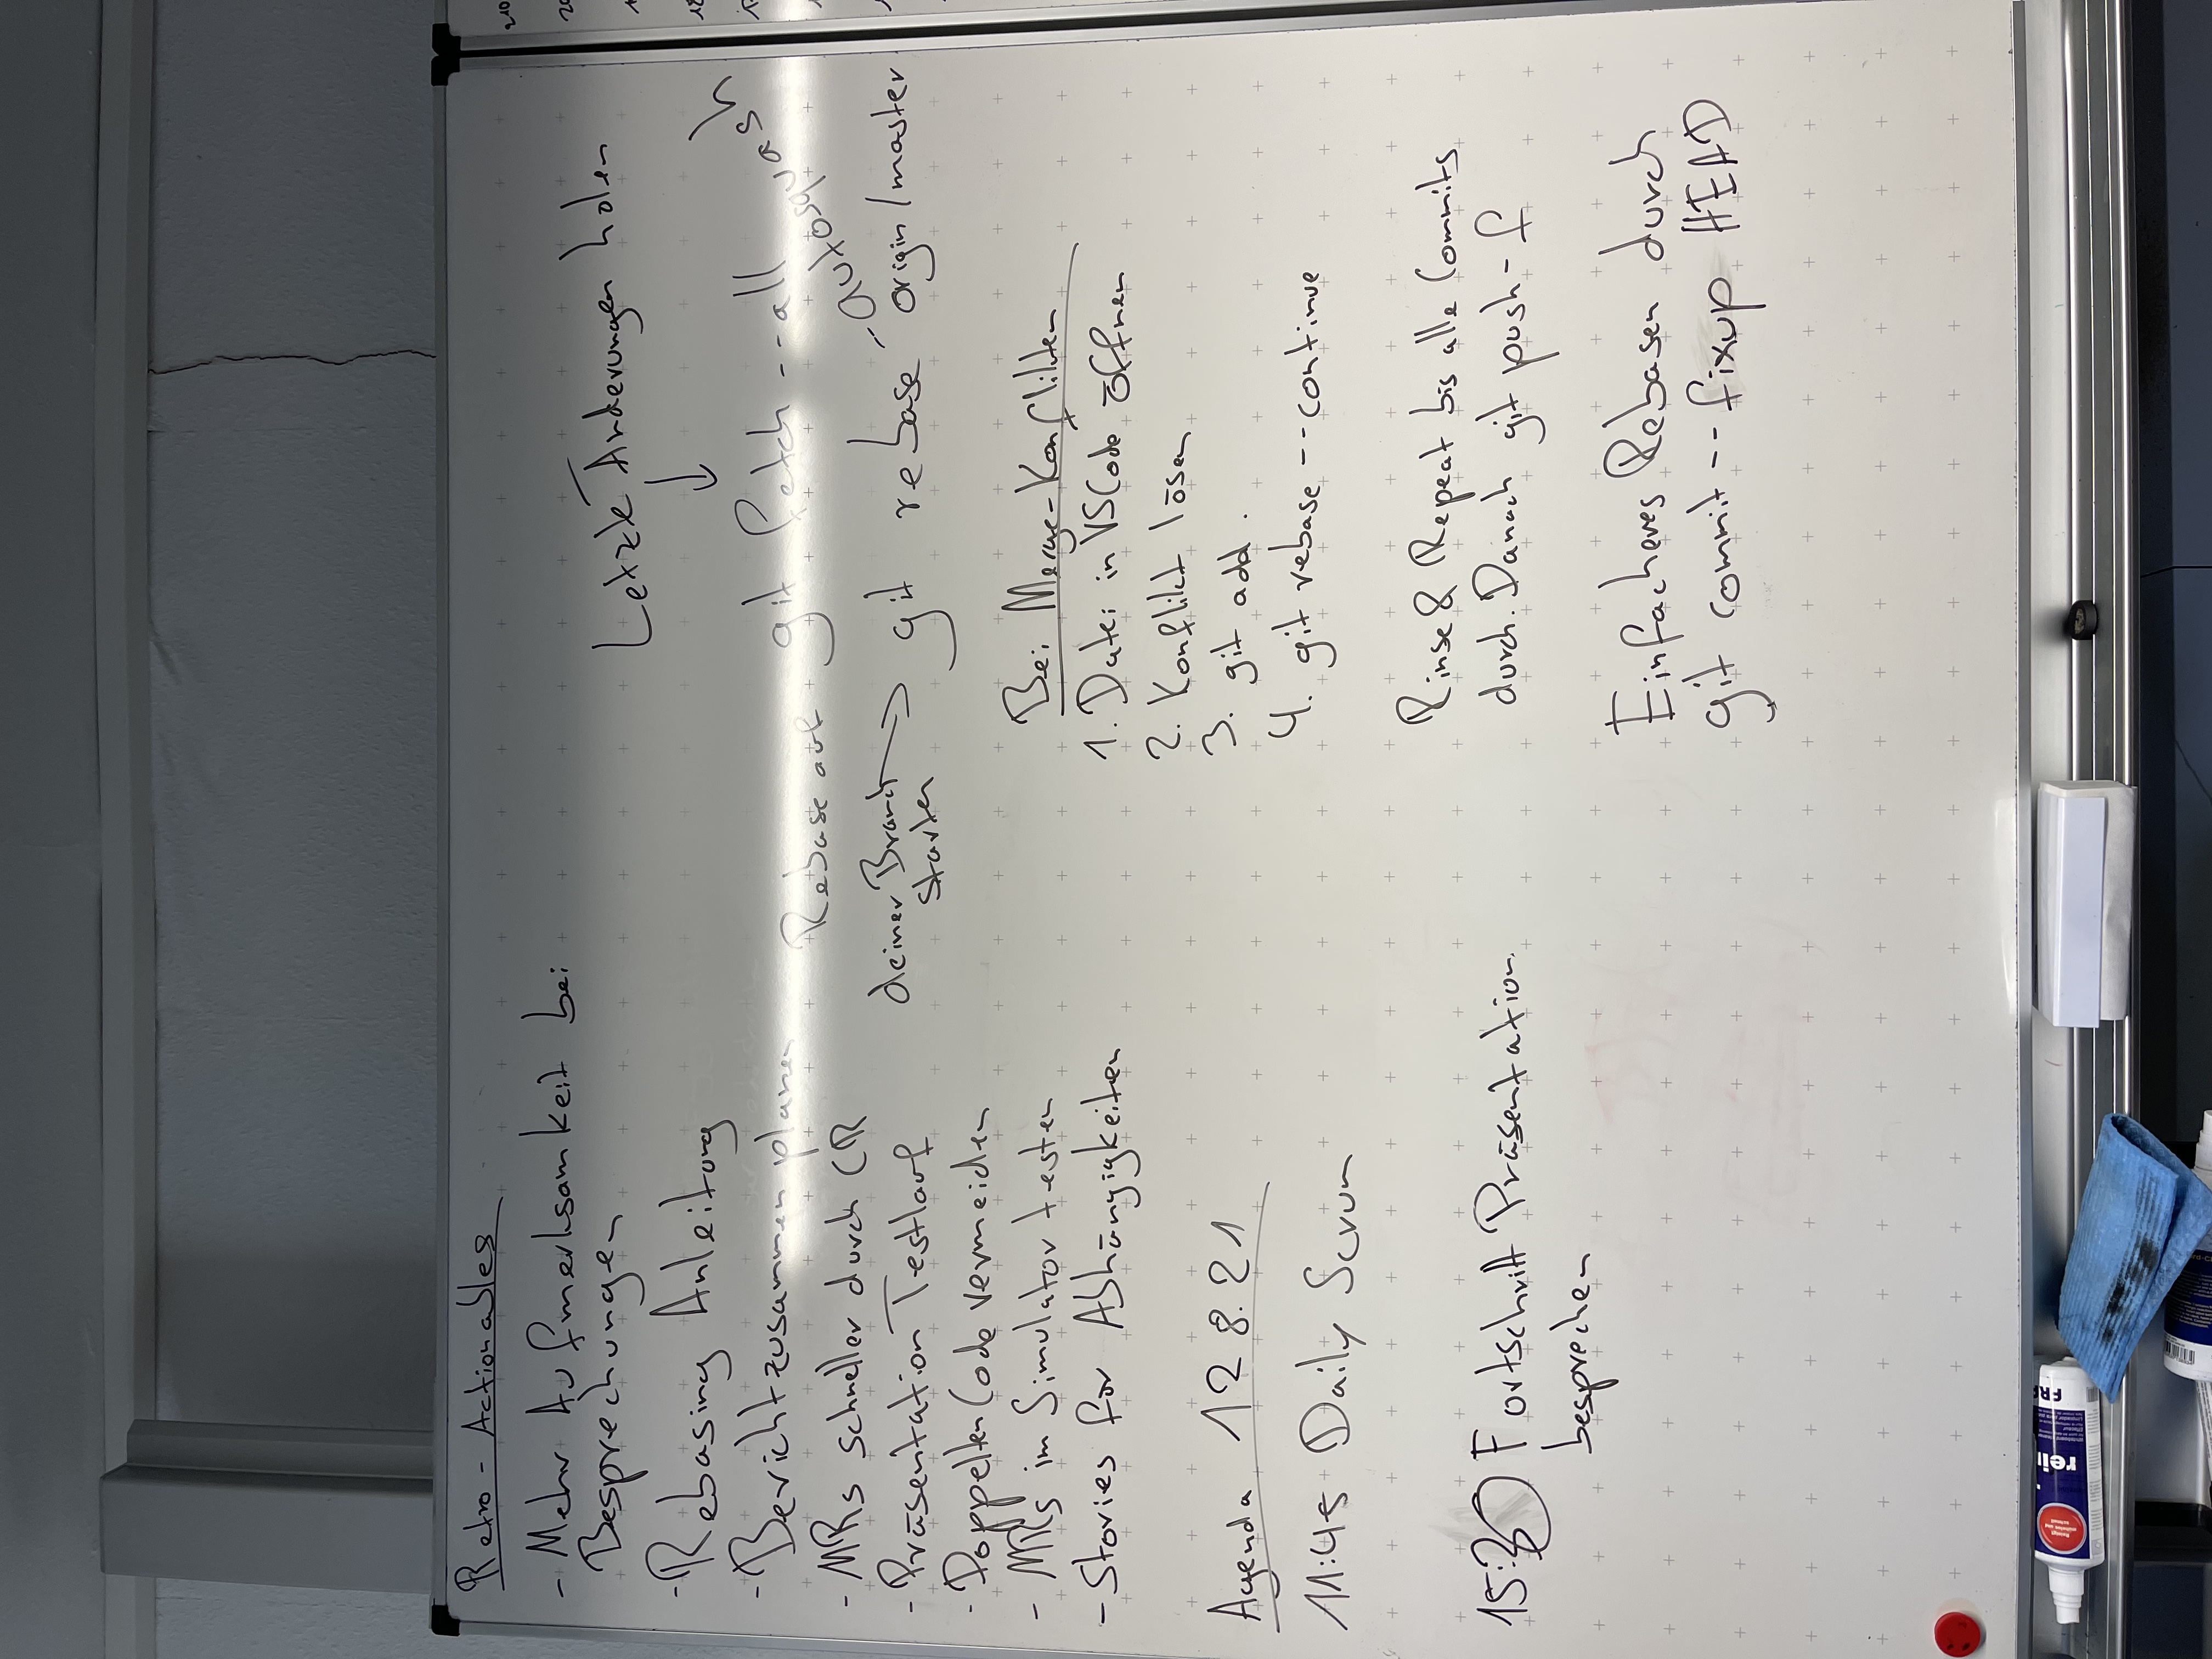 Retro - Actionables
- Mehr Aufmerksamkeit bei
Besprechungen
- Rebasing Anleitung
- Bericht zusammen planen
- MRs schneller durch CR
- Präsentation Testlauf
- Doppelten Code vermeiden
- MRs im Simulator testen
- Stories für Abhängigkeiten
Agenda 12 8.21
11:45 Daily Scrum
15:30 Fortschritt Präsentation
besprechen
Letzte Änderungen holen
git fetch --all
Rebase auf
deiner Branch
starten
git rebase --autosquash origin/master
Bei Merge-Konflikten
1. Datei in VSCode öffnen
2. Konflikt lösen
3. git add .
4. git rebase --continue
Rinse & Repeat bis alle Commits
durch. Danach git push -f
Einfacheres Rebasen durch
git commit --fixup HEAD
rei
FR